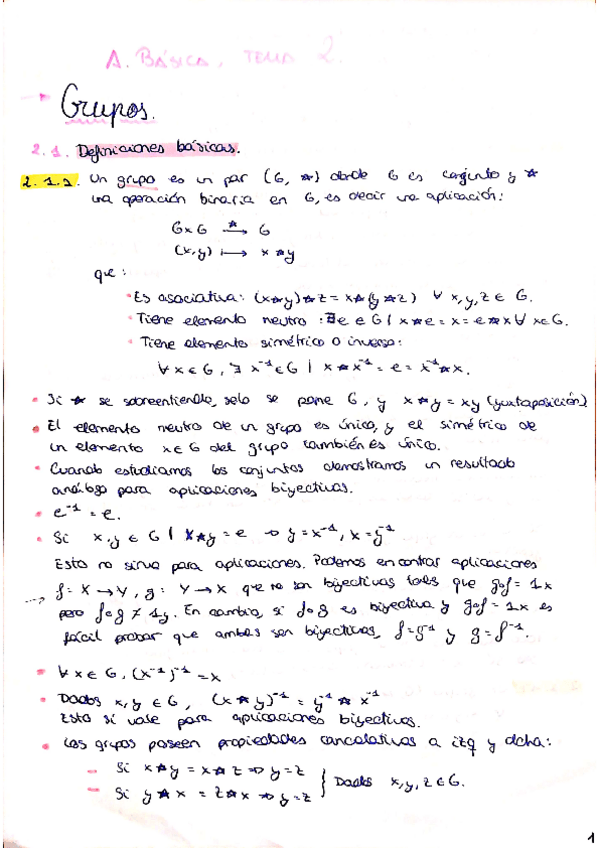 A. BÁSICA. TEMA 2.
Grupos.
2.1. Definiciones básicas.
2.1.1. Un grupo es un par (G, ★) donde G es conjunto y ★
una operación binaria en G, es decir una aplicación:
G×G —★→ G
(x,y) ⟼ x★y
que:
• Es asociativa: (x★y)★z = x★(y★z) ∀ x,y,z ∈ G.
• Tiene elemento neutro: ∃e ∈ G | x★e = x = e★x ∀ x∈G.
• Tiene elemento simétrico o inverso:
∀x∈G, ∃ x⁻¹∈G | x★x⁻¹ = e = x⁻¹★x.
• Si ★ se sobreentiende, solo se pone G, y x★y = xy (yuxtaposición)
• El elemento neutro de un grupo es único, y el simétrico de
un elemento x∈G del grupo también es único.
• Cuando estudiamos los conjuntos demostramos un resultado
análogo para aplicaciones biyectivas.
• e⁻¹ = e.
• Si x,y ∈ G | x★y = e ⇒ y = x⁻¹, x = y⁻¹
Esto no sirve para aplicaciones. Podemos encontrar aplicaciones
f: X→Y, g: Y→X que no son biyectivas tales que g∘f = 1x
pero f∘g ≠ 1y. En cambio, si f∘g es biyectiva y g∘f = 1x es
fácil probar que ambas son biyectivas, f=g⁻¹ y g=f⁻¹.
• ∀x∈G, (x⁻¹)⁻¹ = x
• Dados x,y ∈ G, (x★y)⁻¹ = y⁻¹★x⁻¹
Esto sí vale para aplicaciones biyectivas.
• Los grupos poseen propiedades cancelativas a izq y dcha:
– Si x★y = x★z ⇒ y=z
– Si y★x = z★x ⇒ y=z } Dados x,y,z∈G.
1